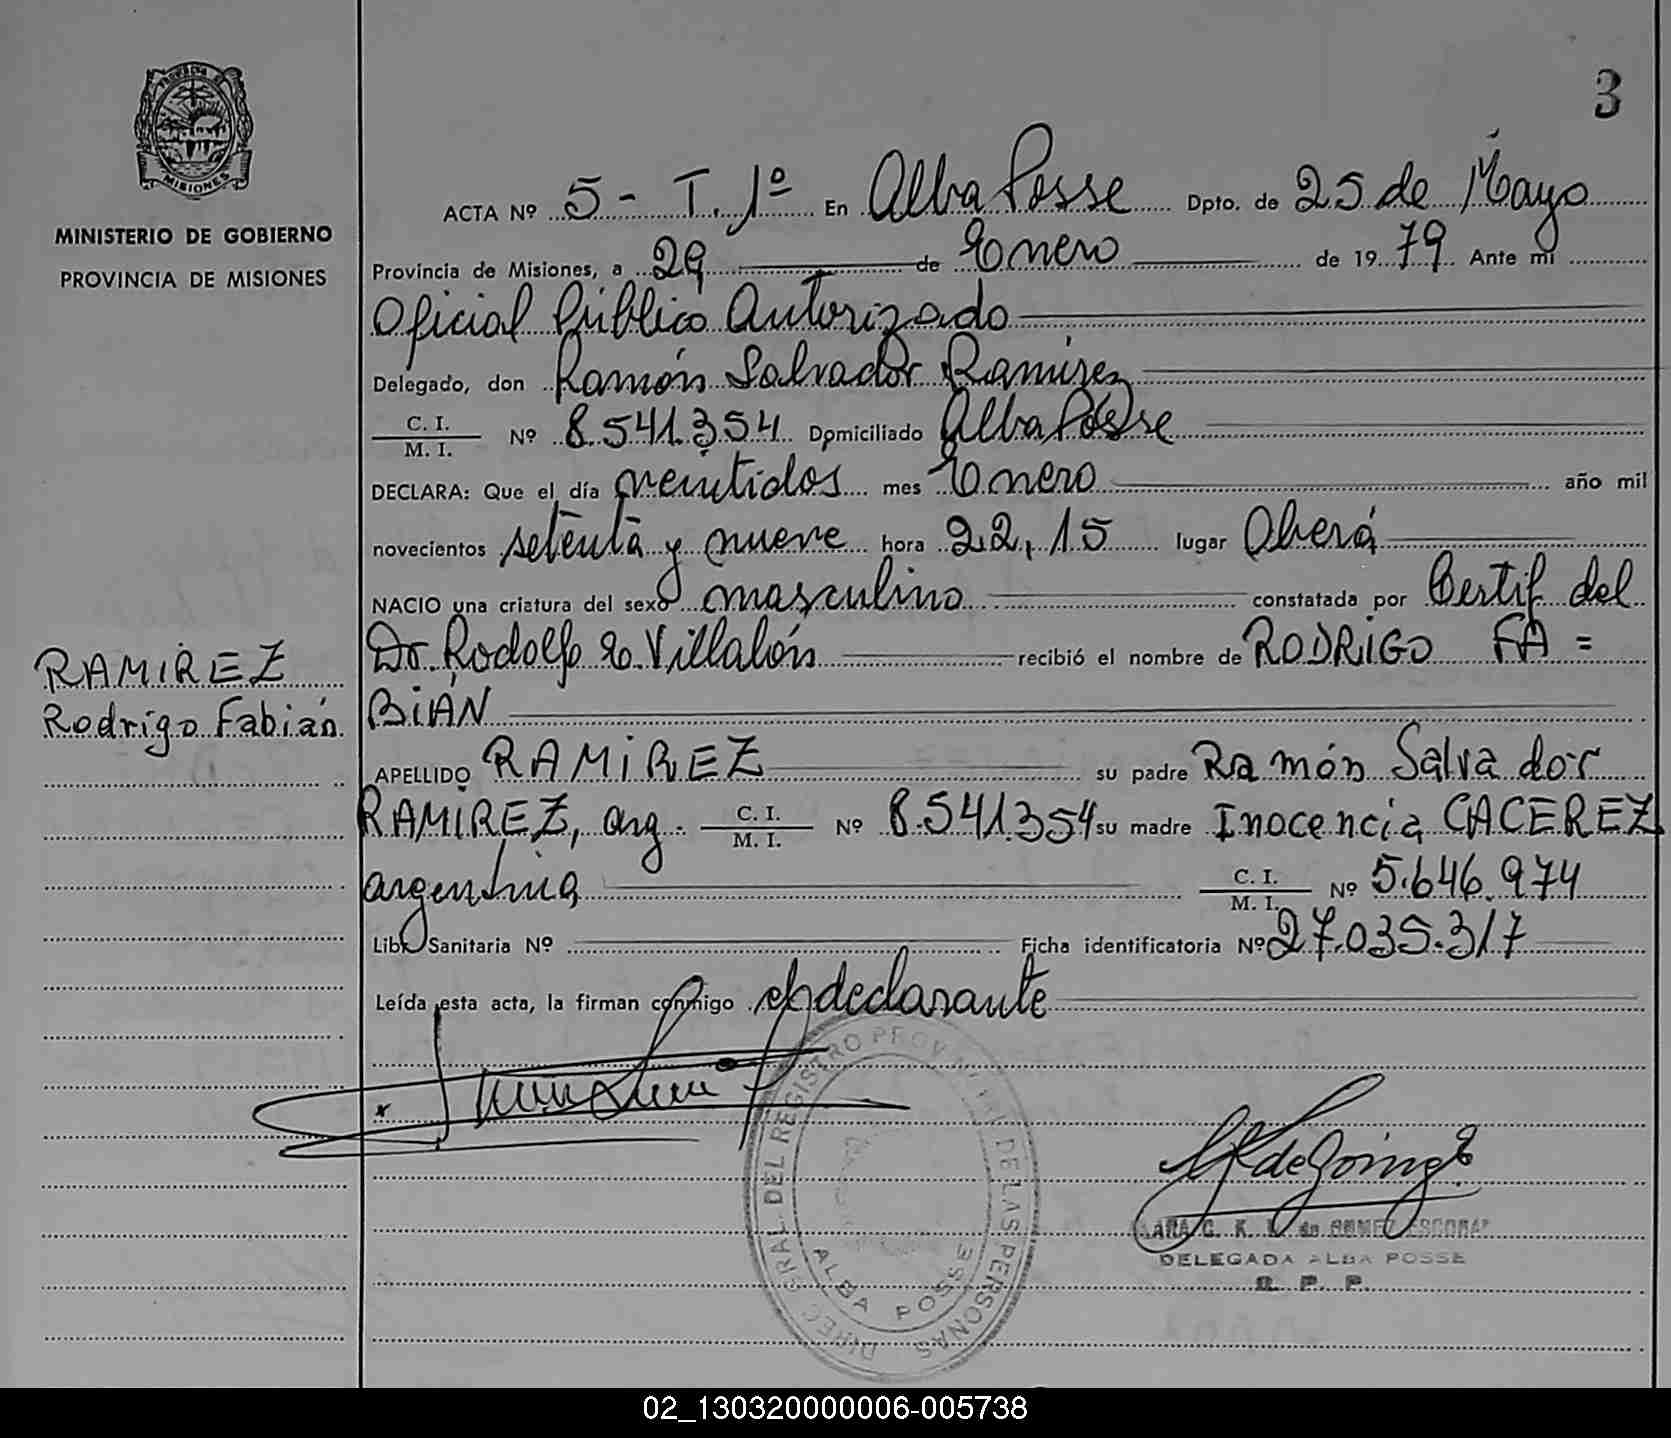 3
MISIONES
MINISTERIO DE GOBIERNO
PROVINCIA DE MISIONES
ACTA Nº 5 - T. 1º En Alba Posse Dpto. de 25 de Mayo
Provincia de Misiones, a 29 de Enero de 1979 Ante mi
Oficial Público Autorizado
Delegado, don Ramón Salvador Ramirez
C. I.
M. I. Nº 8.541.354 Domiciliado Alba Posse
DECLARA: Que el día veintidos mes Enero año mil
novecientos setenta y nueve hora 22,15 lugar Oberá
NACIO una criatura del sexo masculino constatada por Certif del
Dr. Rodolfo E. Villalón recibió el nombre de RODRIGO FA =
BIÁN
RAMIREZ
Rodrigo Fabián
APELLIDO RAMIREZ su padre Ramón Salvador
RAMIREZ, arg. C. I.
M. I. Nº 8.541.354 su madre Inocencia CACEREZ
argentina C. I.
M. I. Nº 5.646.974
Libr Sanitaria Nº Ficha identificatoria Nº 27.035.317
Leída esta acta, la firman conmigo el declarante
DIREC GRAL. DEL REGISTRO PROVINCIAL DE LAS PERSONAS
ALBA POSSE
de GOMEZ ESCOBAR
DELEGADA ALBA POSSE
02_130320000006-005738